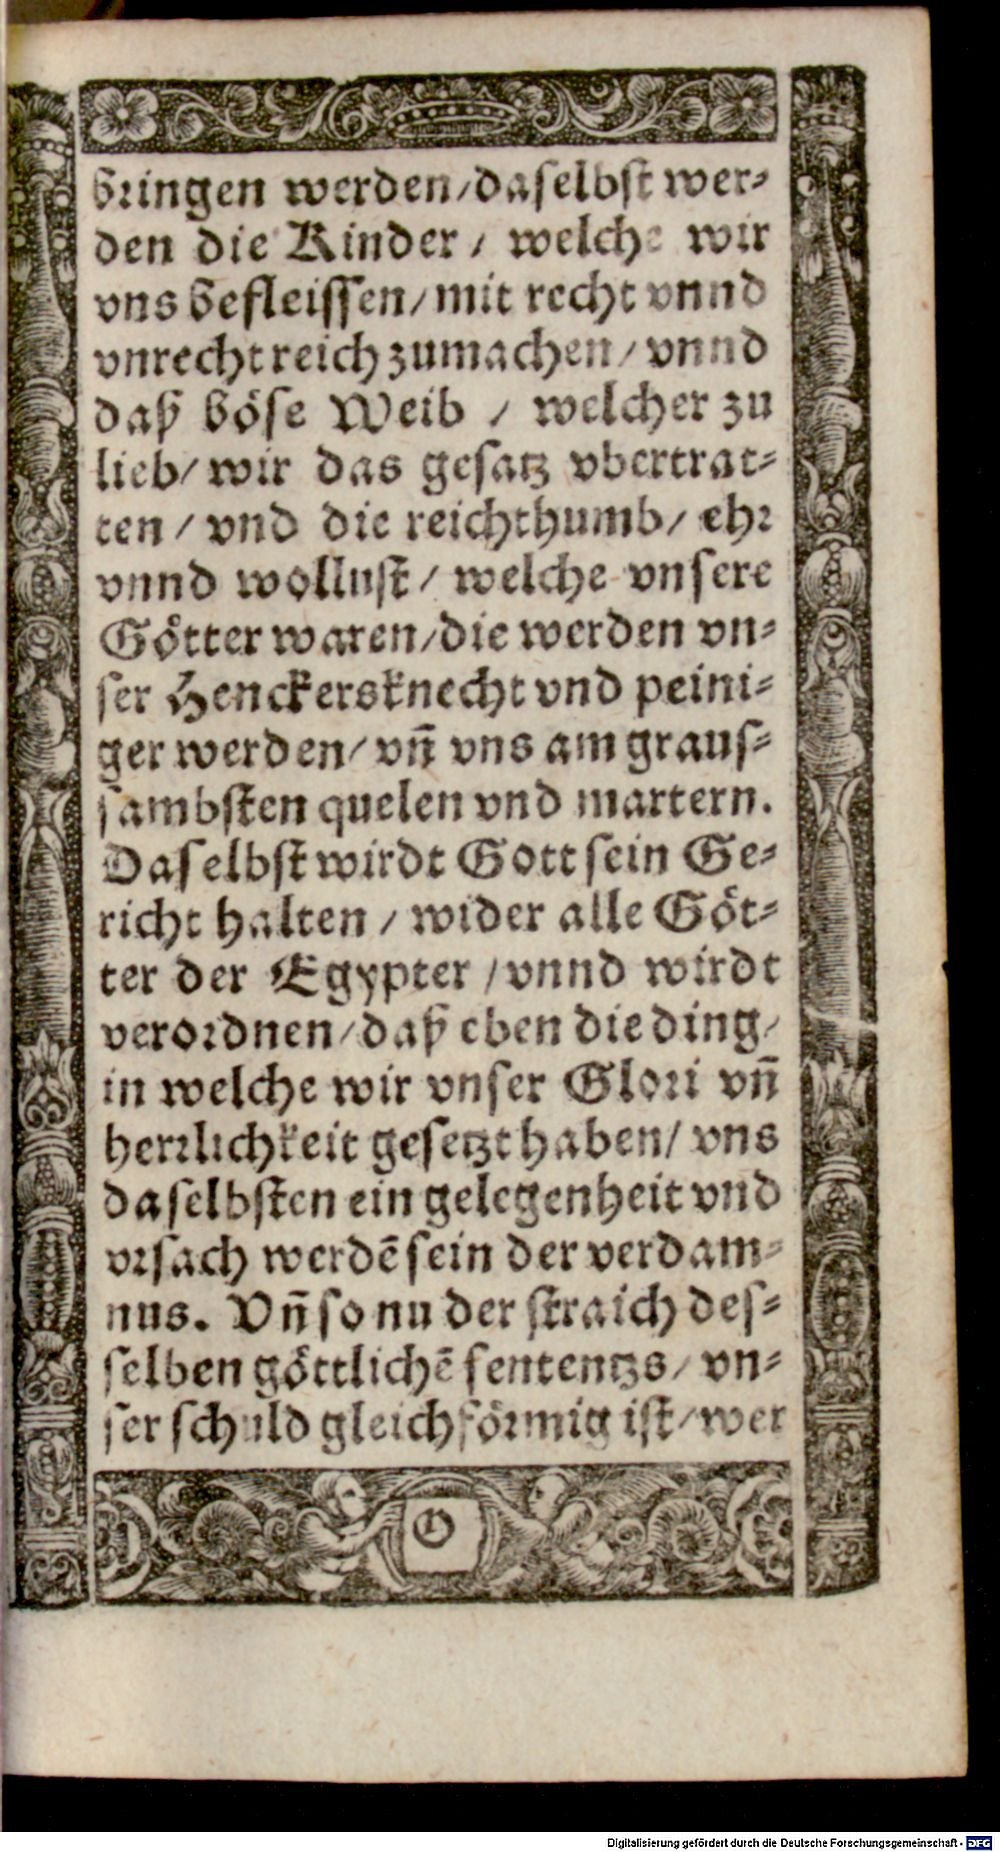 bringen werden/daselbst wer⸗
den die Kinder/ welche wir
vns befleissen/mit recht vnnd
vnrecht reich zumachen/vnnd
daß böse Weib / welcher zu
lieb/ wir das gesatz vbertrat⸗
ten/ vnd die reichthumb/ ehr
vnnd wollust/ welche vnsere
Götter waren/die werden vn⸗
ser Henckersknecht vnd peini⸗
ger werden/ vñ vns am graus⸗
sambsten quelen vnd martern.
Daselbst wirdt Gott sein Ge⸗
richt halten / wider alle Göt⸗
ter der Egypter /vnnd wirdt
verordnen/daß eben die ding/
in welche wir vnser Glori vñ
herrlichkeit gesetzt haben/ vns
daselbsten ein gelegenheit vnd
vrsach werdẽ sein der verdam⸗
nus. Vñ so nu der straich des⸗
selben göttlichẽ sententzs/ vn⸗
ser schuld gleichförmig ist/wer
O
Digitalisierung gefördert durch die Deutsche Forschungsgemeinschaft - DFG